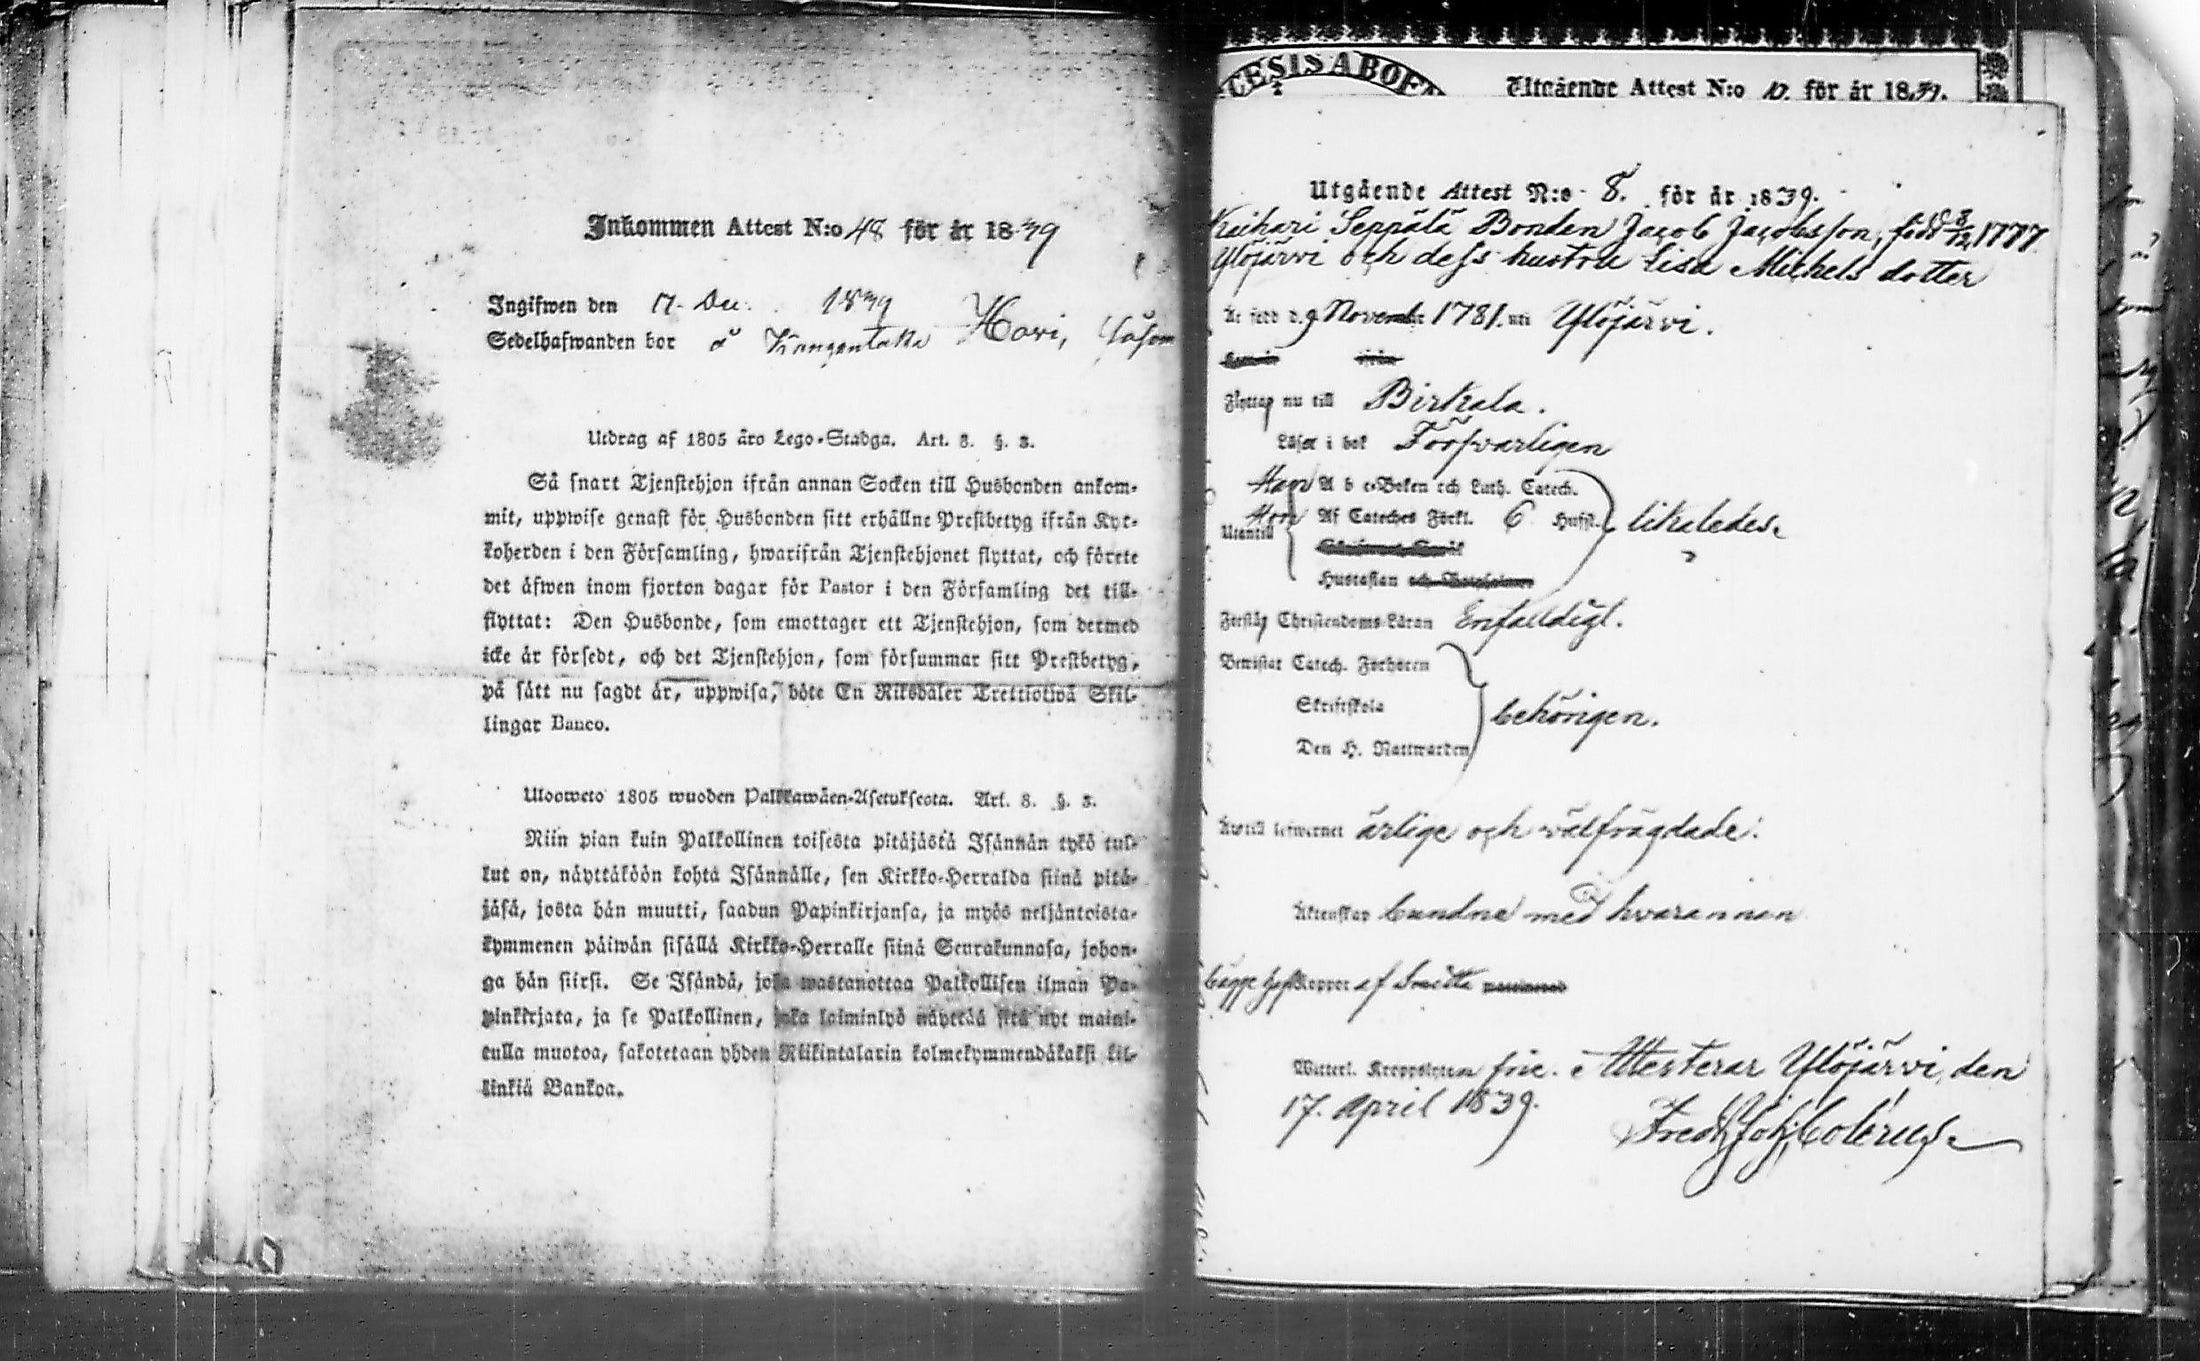 Inkommen Attest N:o 48 för år 1839
Ingifwen den 17. Dec. 1839
Sedelhafwanden bor å Hovi,
Utdrag af 1805 års Lego-Stadga. Art. 8. §. 3.
Så snart Tjenstehjon ifrån annan Socken till Husbonden ankom-
mit, uppwise genast för Husbonden sitt erhållne Prestbetyg ifrån Kyr-
koherden i den Församling, hwarifrån Tjenstehjonet flyttat, och förete
det äfwen inom fjorton dagar för Pastor i den Församling det till-
flyttat: Den Husbonde, som emottager ett Tjenstehjon, som dermed
icke är försedt, och det Tjenstehjon, som försummar sitt Prestbetyg,
på sätt nu sagdt är, uppwisa, böte En Riksdaler Trettiotwå Skil-
lingar Banco.
Uloswето 1805 wuoden Palkkawäen-Asetuksesta. Art. 8. §. 3.
Niin pian kuin Palkollinen toisesta pitäjästä Isännän tykö tul-
lut on, näyttäköön kohta Isännälle, sen Kirkko-Herralda siinä pitä-
jäsä, josta hän muutti, saadun Papinkirjansa, ja myös neljäntoista-
kymmenen päiwän sisällä Kirkko-Herralle siinä Seurakunnasa, johon-
ga hän siirsi. Se Isändä, joka wastanottaa Palkollisen ilman Pa-
pinkirjata, ja se Palkollinen, joka laiminlyö näyttää sitä nyt maini-
tulla muotoa, sakotetaan yhden Riikintalarin kolmekymmendäkaksi kil-
linkiä Bankoa.
CESIS ABOE
Utgående Attest N:o 10. för år 1839.
Utgående Attest N:o 8. för år 1839.
Keihäri Seppälä Bonden Jacob Jacobsson, född d 8/12 1777
Ylöjärvi och dess hustru Lisa Michels dotter
Är född d. 9 November 1781. uti Ylöjärvi.
Flyttar nu till Birkala.
Läser i bok Försvarligen
Han A b c-Boken och Luth. Catech.
Hon Af Cateches Förkl. 6 Hufst. likaledes.
Utantill
Hustaflan
Förstår Christendoms-Läran Enfaldigt.
Bewistat Catech. Förhören
Skriftskola behörigen.
Den H. Nattwarden
Är till lefwernet ärlige och välfrägdade.
Äktenskap bundne med hvarannan
bägge haft Koppor af Smitta
Witterl. Kroppslyten frie. Attesterar Ylöjärvi, den
17. April 1839.
Fredr. Joh. Colérus.